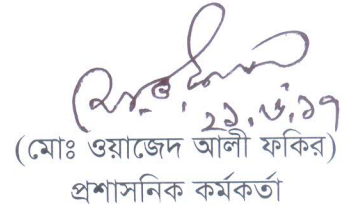 ২১.৬.১৭
(মোঃ ওয়াজেদ আলী ফকির)
প্রশাসনিক কর্মকর্তা